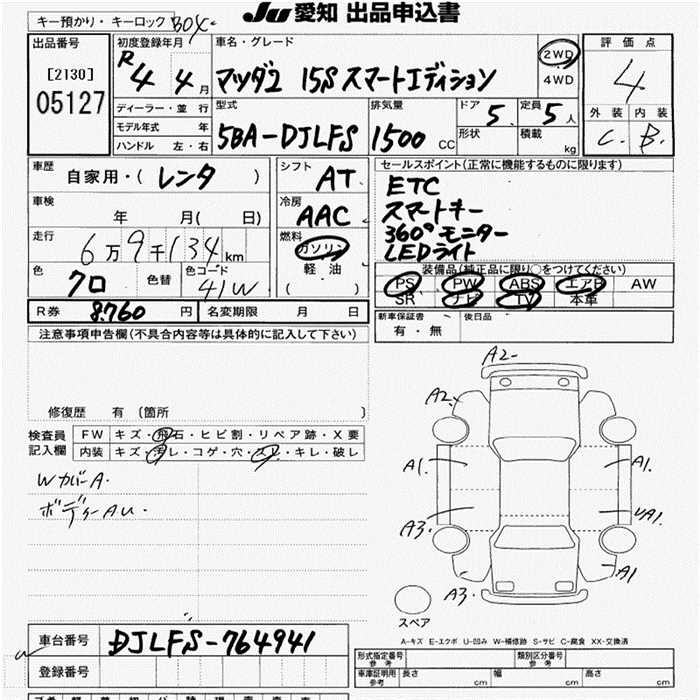 キー預かり・キーロック BOX
Ju 愛知 出品申込書
出品番号
[2130]
05127
初度登録年月
R4 4月
車名・グレード
マツダ2 15S スマートエディション
2WD
4WD
評価点
4
外装 内装
C. B.
ディーラー・並行
モデル年式 年
ハンドル 左・右
型式
5BA-DJLFS
排気量
1500 CC
ドア
5.
形状
定員
5人
積載
kg
車歴
自家用・(レンタ)
車検
年 月( 日)
走行
6万9千134km
色
クロ
色替
色コード
41W
シフト
AT
冷房
AAC
燃料
ガソリン
軽油
( )
セールスポイント(正常に機能するものに限ります)
ETC
スマートキー
360°モニター
LEDライト
装備品(純正品に限り○をつけてください)
PS PW ABS エアB AW
SR ナビ TV 本革
R券 8760 円
名変期限 月 日
新車保証書
有・無
後日品
注意事項申告欄(不具合内容等は具体的に記入して下さい)
修復歴 有 (箇所 )
検査員
記入欄
FW キズ・飛石・ヒビ割・リペア跡・X要
内装 キズ・汚レ・コゲ・穴・スレ・キレ・破レ
WカバーA.
ボディーAU.
A2
A2
A1
A1.
A3
A1.
A1
A3
スペア
A-キズ E-エクボ U-凹み W-補修跡 S-サビ C-腐食 XX-交換済
車台番号 DJLFS-764941
登録番号
形式指定番号
参考
類別区分番号
参考
車庫証明用
参考
長さ cm 幅 cm 高さ cm